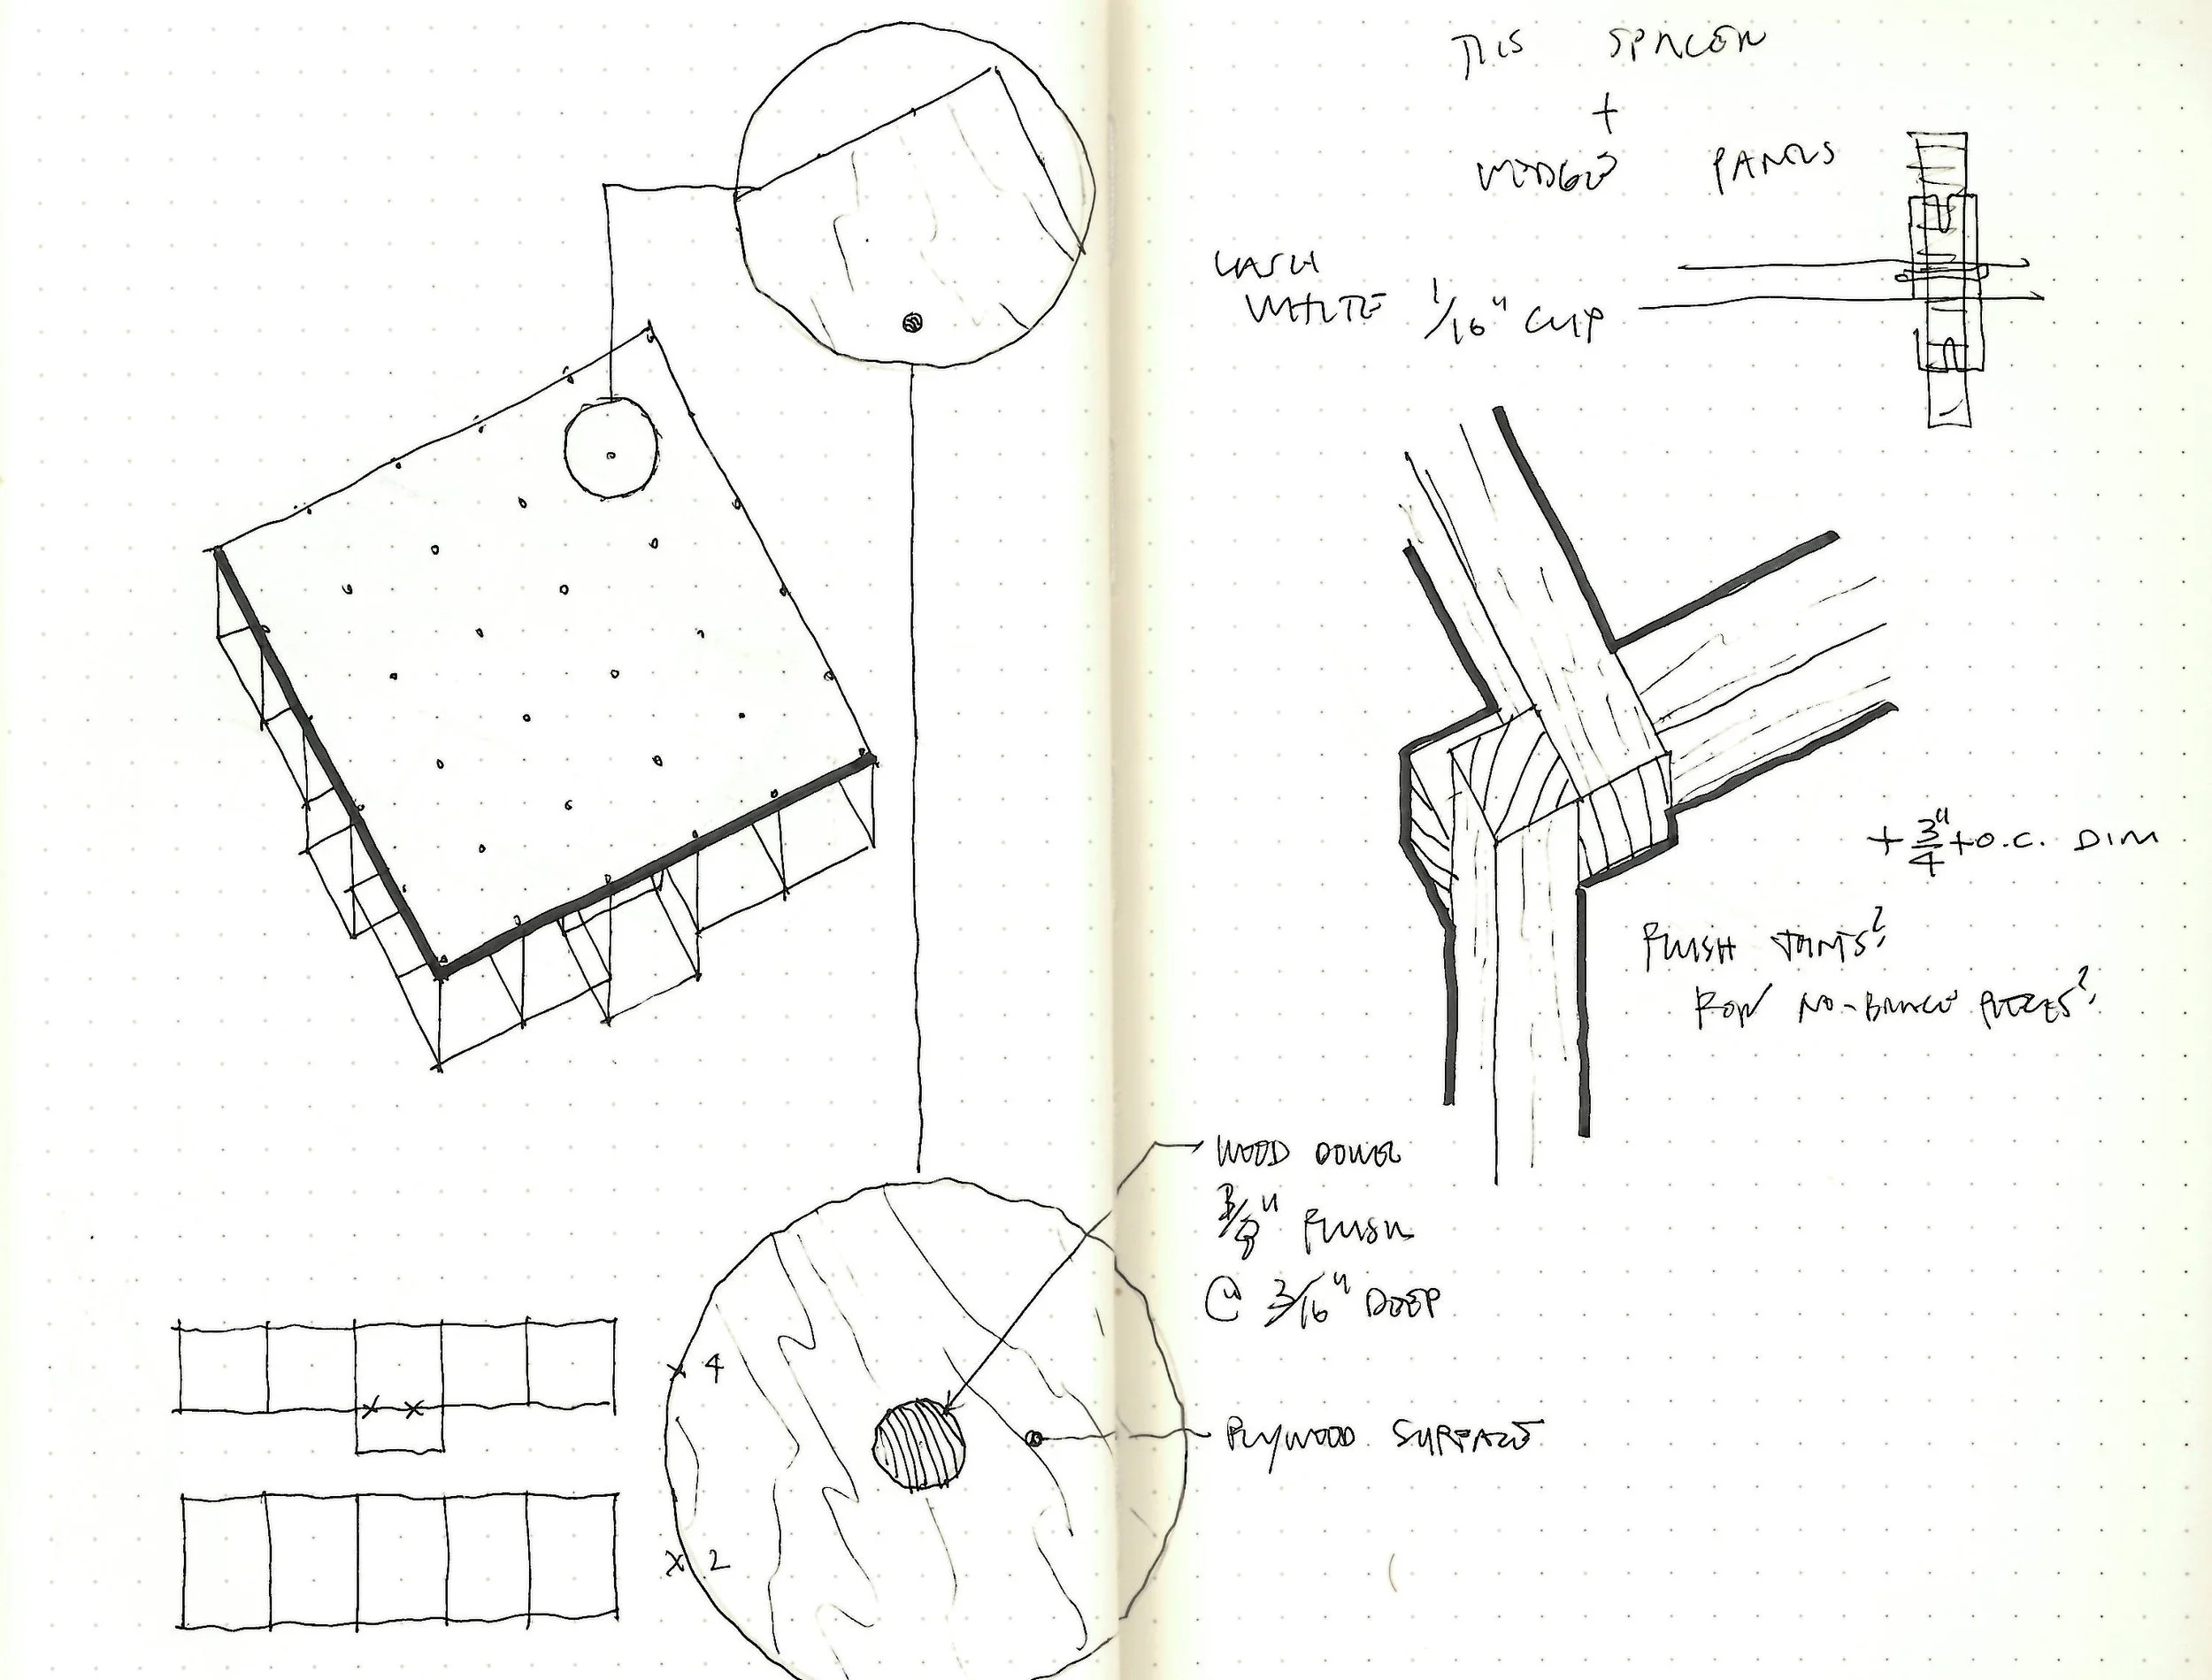 THIS SPACER
+
WEDGES PANELS
LASH
WHITE 1/16" CLIP
+ 3/4" + O.C. DIM
FLUSH JOINTS?
FOR NO-BRACE PIECES?
WOOD DOWEL
3/8" FLUSH
@ 3/16" DEEP
x 4
PLYWOOD SURFACE
x 2